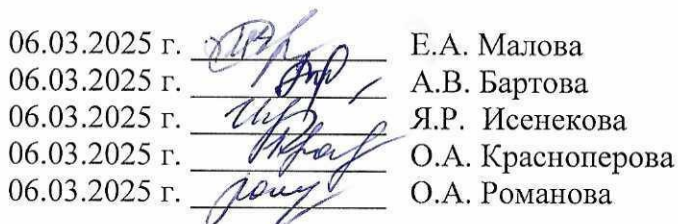 06.03.2025 г. Е.А. Малова
06.03.2025 г. А.В. Бартова
06.03.2025 г. Я.Р. Исенекова
06.03.2025 г. О.А. Красноперова
06.03.2025 г. О.А. Романова